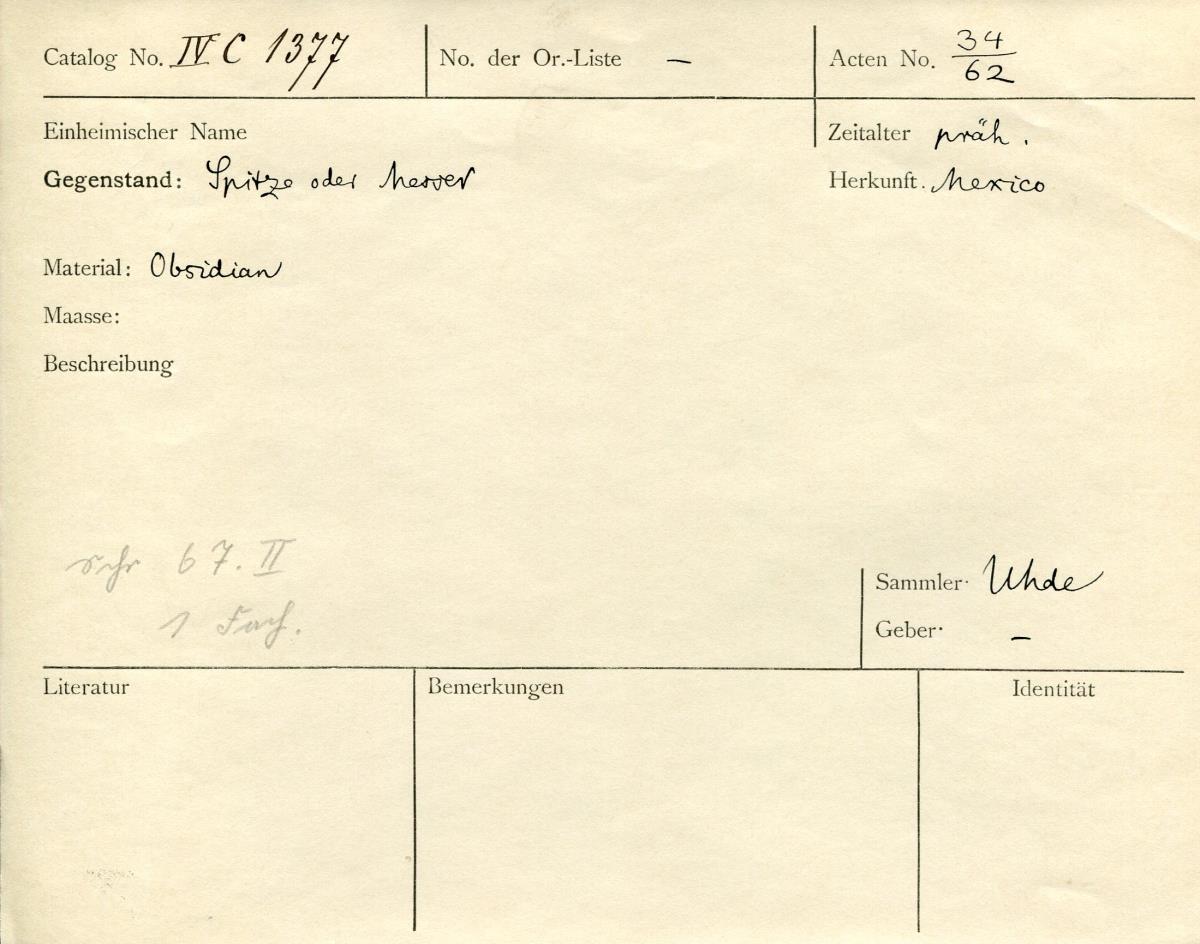 Catalog No. IV C 1377 No. der Or.-Liste — Acten No. 34/62
Einheimischer Name Zeitalter präh.
Gegenstand: Spitze oder Messer Herkunft. Mexico
Material: Obsidian
Maasse:
Beschreibung
schr 67. II
1 Fach.
Sammler. Uhde
Geber. —
Literatur Bemerkungen Identität